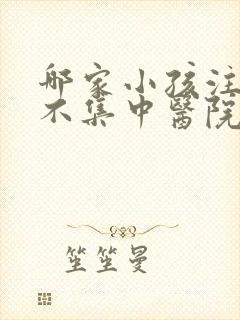 哪家小孩注
不集中醫院
笙笙曼